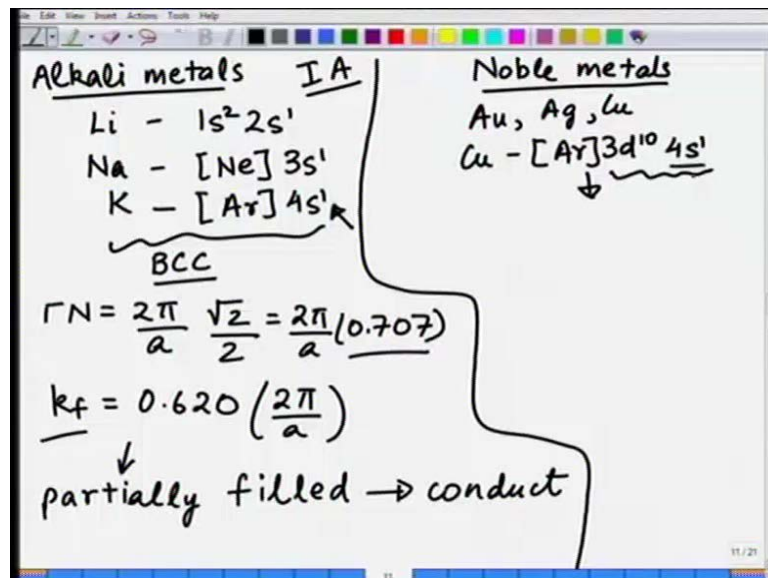 File Edit View Insert Actions Tools Help
Alkali metals IA
Li - 1s² 2s¹
Na - [Ne] 3s¹
K - [Ar] 4s¹
BCC
ΓN = 2π/a √2/2 = 2π/a (0.707)
kf = 0.620 (2π/a)
↓
partially filled → conduct
Noble metals
Au, Ag, Cu
Cu - [Ar] 3d¹⁰ 4s¹
↓
11 / 21
11